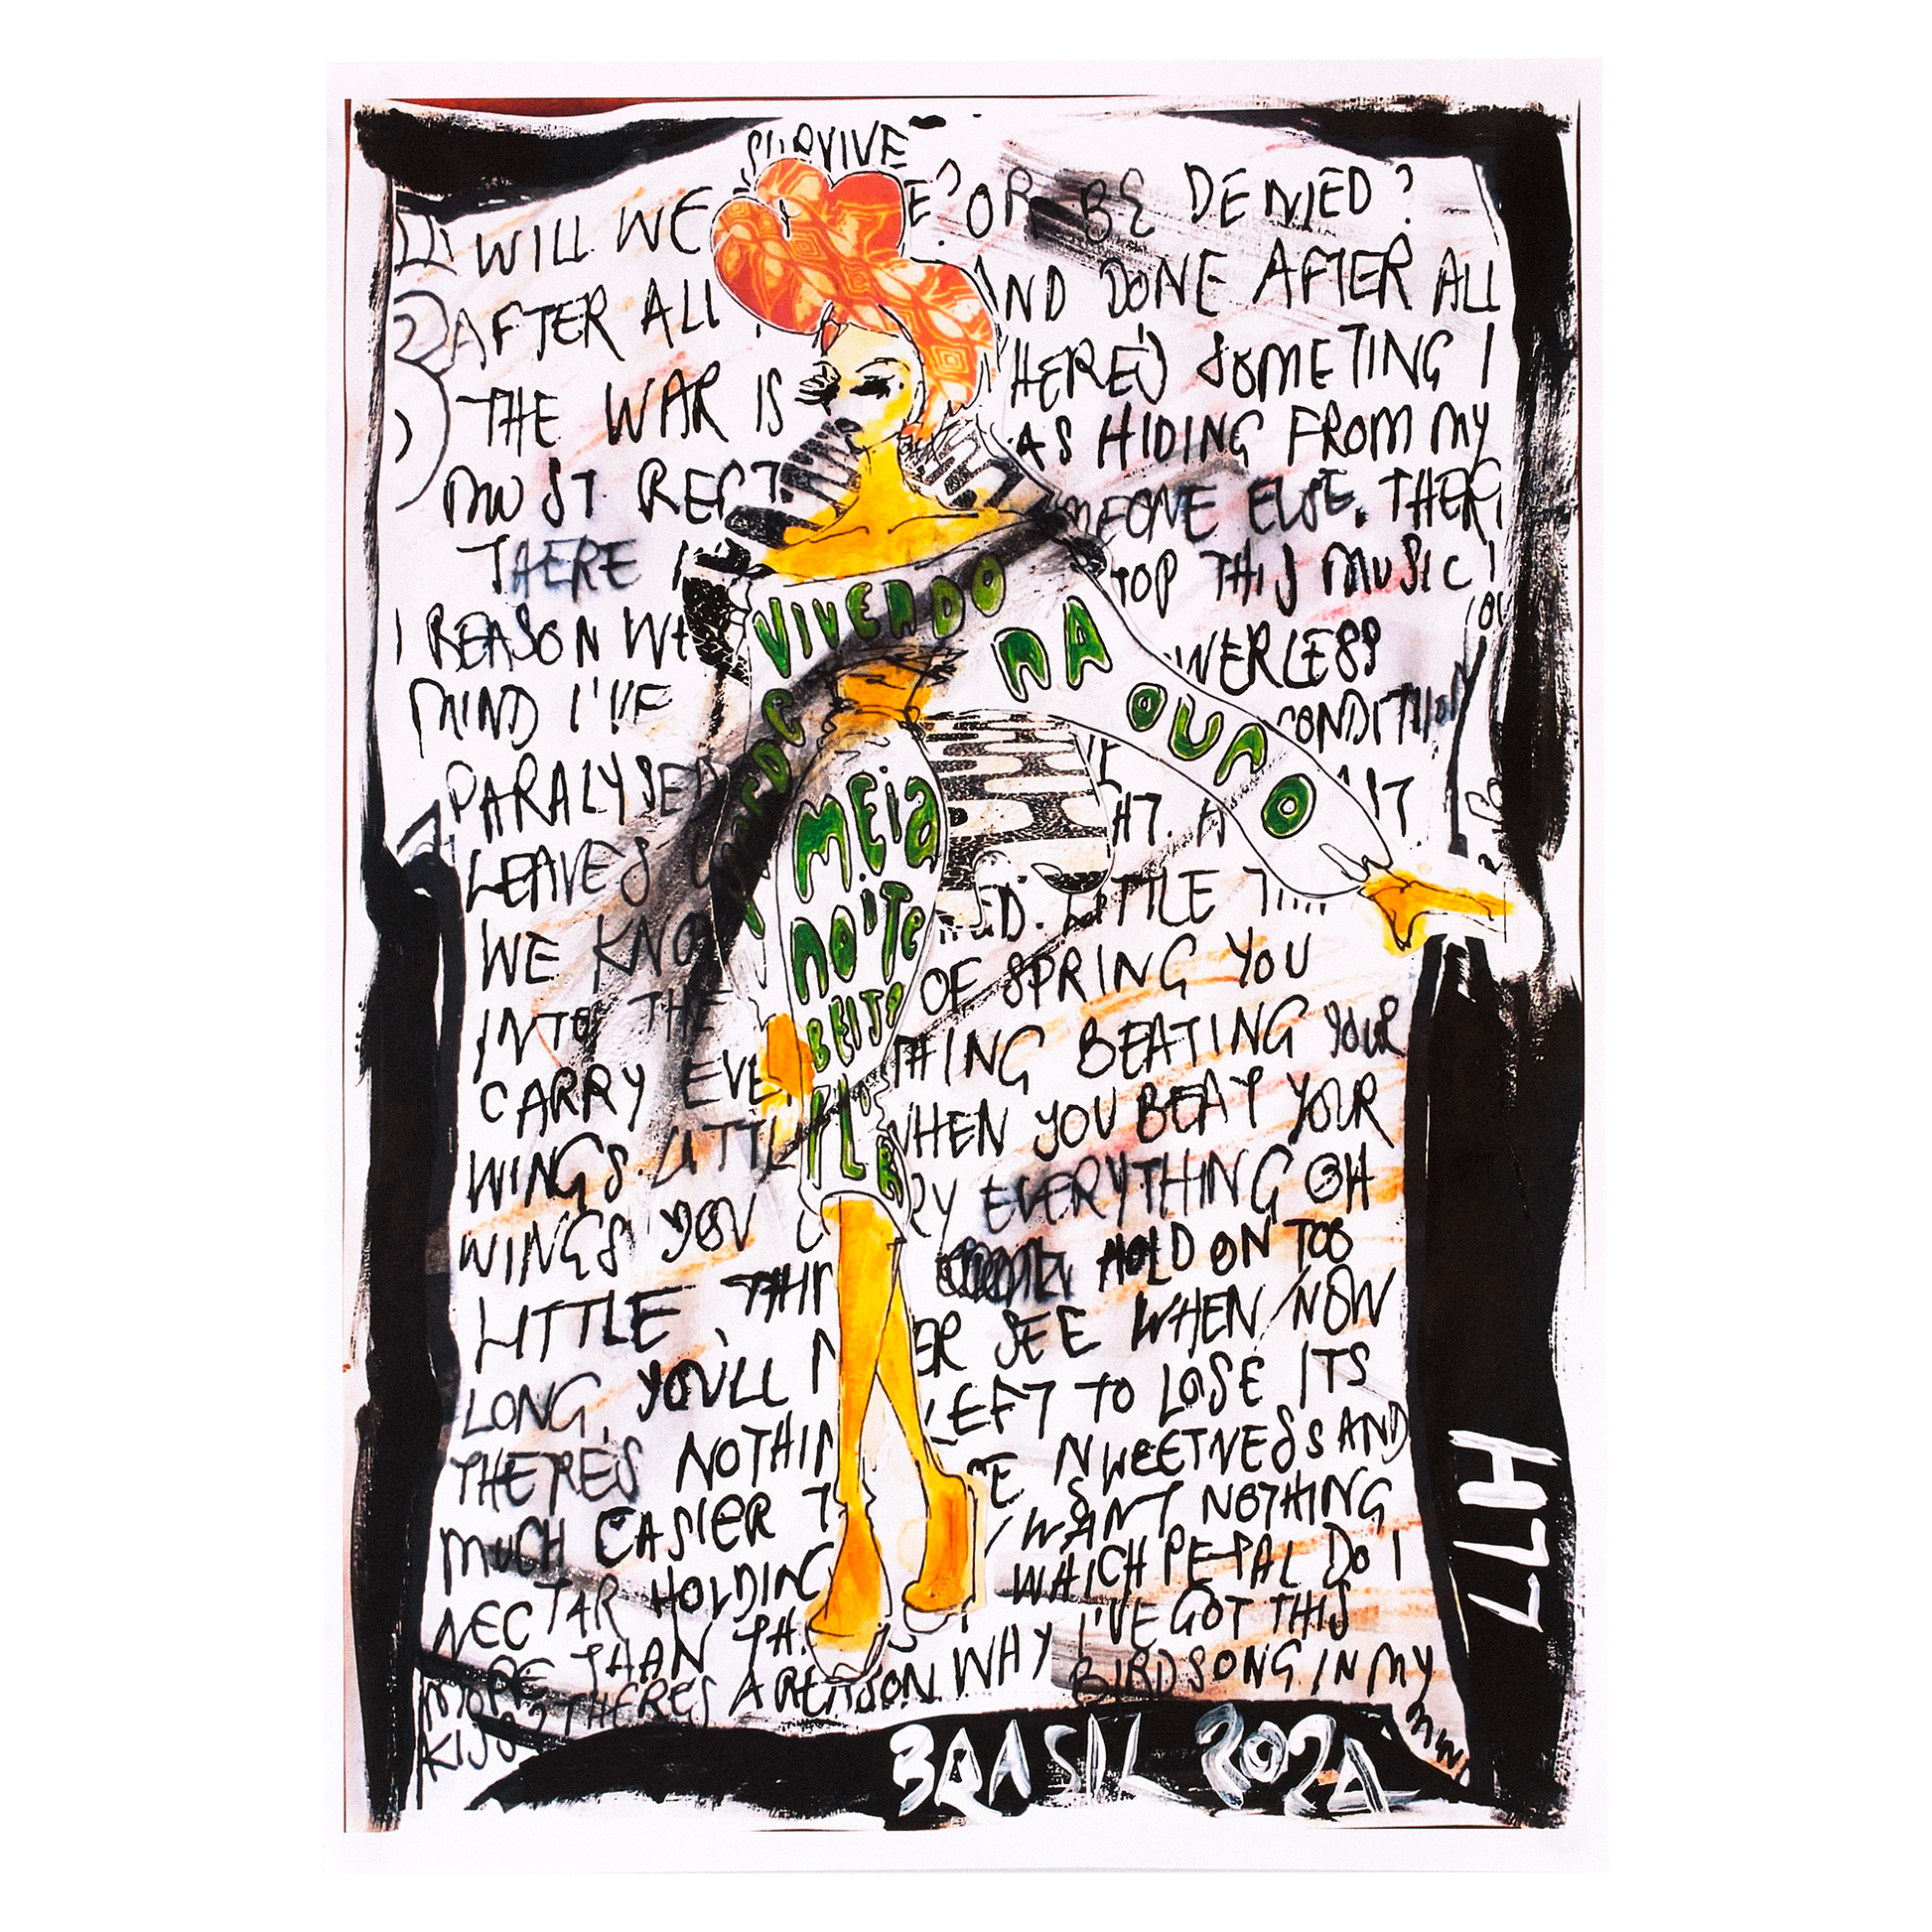 SURVIVE
WILL WE E? OR BE DENIED?
AFTER ALL AND DONE AFTER ALL
THE WAR IS HERE'S SOMETING I
MUST AS HIDING FROM MY
THERE MEONE ELSE. THER
I REASON TOP THIS MUSIC I
MIND I'VE WERLESS
PARALYSED CONDITION
LEAVES HT. A IT
WE KNO D. LITTLE THI
INTO THE OF SPRING YOU
CARRY EVE THING BEATING YOUR
WINGS. LITTL WHEN YOU BEAT YOUR
WINGS YOU C RY EVERYTHING OH
LITTLE THI HOLD ON TOO
LONG, YOU'LL N ER SEE WHEN NOW
THERE'S NOTHIN LEFT TO LOSE ITS
MUCH EASIER T SWEETNESS AND
NECTAR HOLDING WANT NOTHING
MORE THAN TH WHICH PEPAL DO I
KISS? THERES A REASON WHY I'VE GOT THIS
BIRDSONG IN MY
VIVENDO
NA
OURO
MEIA
NOITE
BEIJO
H77
BRASIL 2024